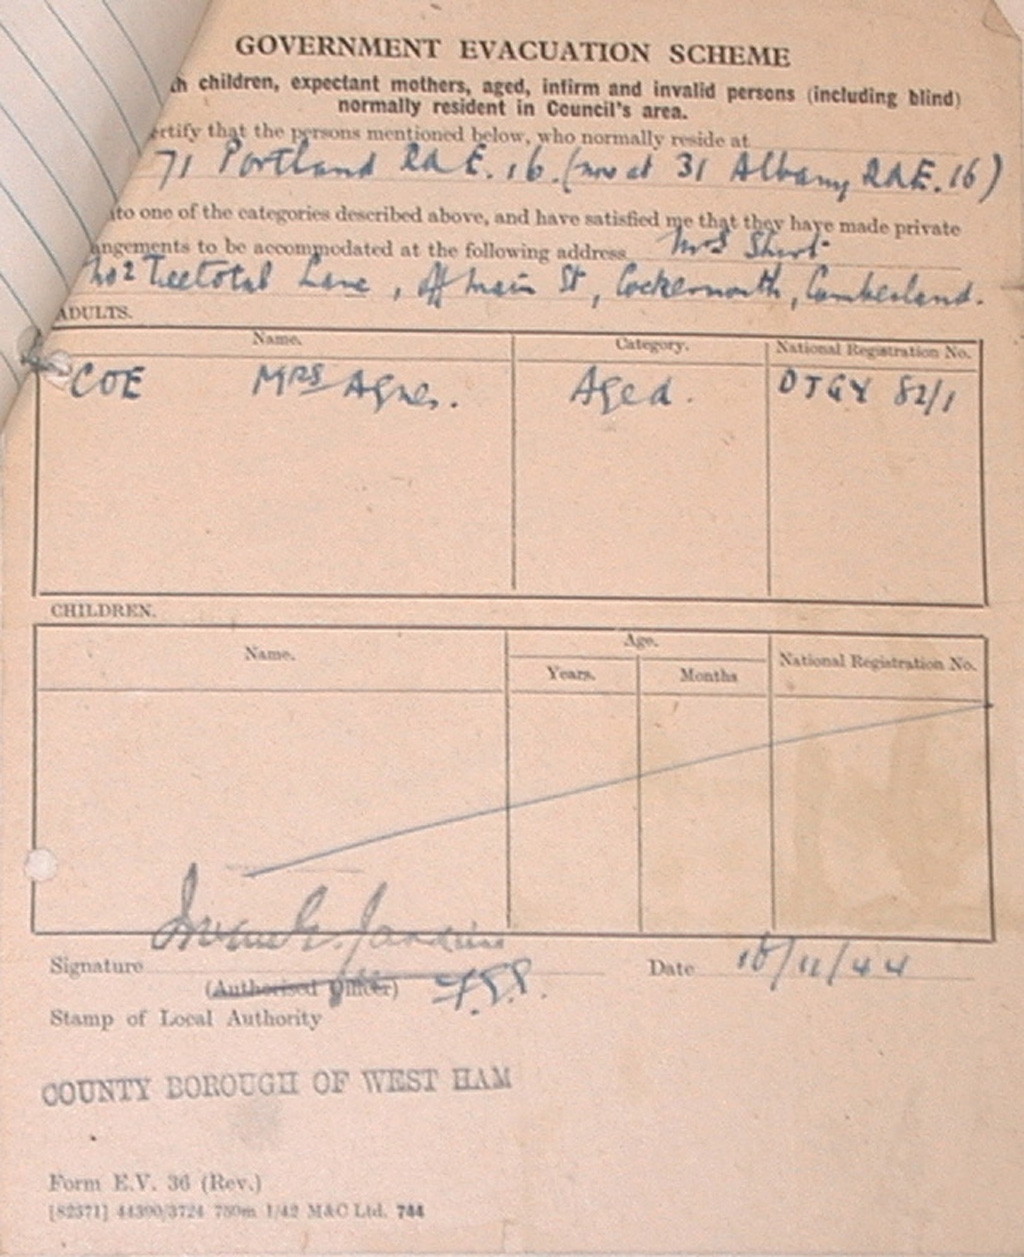 GOVERNMENT EVACUATION SCHEME
children, expectant mothers, aged, infirm and invalid persons (including blind)
normally resident in Council's area.
ertify that the persons mentioned below, who normally reside at
71 Portland Rd E.16. (now at 31 Albany Rd E.16)
to one of the categories described above, and have satisfied me that they have made private
angements to be accommodated at the following address Mrs Short
No 2 Teetotal Lane, off Main St, Cockermouth, Cumberland.
ADULTS.
Name. Category. National Registration No.
COE MRS Agnes. Aged. DTGY 82/1
CHILDREN.
Name. Age. National Registration No.
Years. Months
Signature
Date /11/44
(Authorised Officer)
Stamp of Local Authority
COUNTY BOROUGH OF WEST HAM
Form E.V. 36 (Rev.)
[82371] 44300/3724 750m 1/42 M&C Ltd. 744